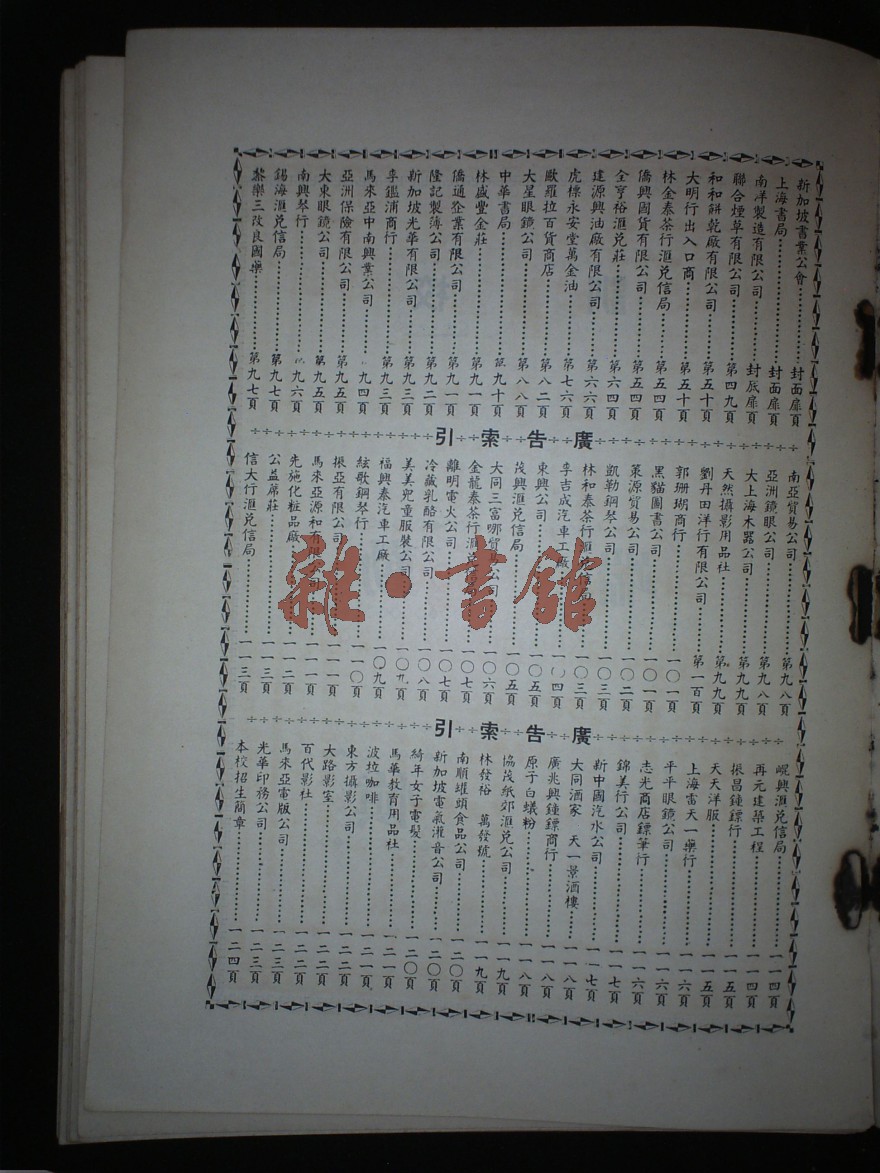 新加坡書業公會……封面扉頁
上海書局……封面扉頁
南洋製造有限公司……封底扉頁
聯合煙草有限公司……第四九頁
和和餅乾廠有限公司……第五十頁
大明行出入口商……第五十頁
林金泰茶行滙兌信局……第五四頁
僑興國貨有限公司……第五四頁
全亨裕滙兌莊……第六四頁
建源興油廠有限公司……第六六頁
虎標永安堂萬金油……第七六頁
歐羅拉百貨商店……第八二頁
大星眼鏡公司……第八八頁
中華書局……第九十頁
林盛豐金莊……第九一頁
僑通企業有限公司……第九一頁
隆記製薄公司……第九二頁
新加坡光華有限公司……第九三頁
李鑑浦商行……第九三頁
馬來亞中南興業公司……九四頁
亞洲保險有限公司……第九五頁
大東眼鏡公司……第九五頁
南興琴行……九六頁
錫海滙兌信局……第九七頁
黎樂三改良國藥……第九七頁
廣告索引
南亞貿易公司……第九八頁
亞洲鏡眼公司……第九八頁
大上海木器公司……第九九頁
天然攝影用品社……第九九頁
劉丹田洋行有限公司……第一百頁
郭珊瑚商行……一〇一頁
黑貓圖書公司……一〇一頁
萊源貿易公司……一〇二頁
凱勒鋼琴公司……一〇三頁
林和泰茶行滙兌信局……一〇三頁
李吉成汽車工廠……一〇四頁
東興公司……一〇五頁
茂興滙兌信局……一〇五頁
大同三富哪貿易公司……一〇六頁
金龍泰茶行滙兌……一〇七頁
離明電火公司……一〇七頁
冷藏乳酪有限公司……一〇八頁
美美兒童服裝公司……一〇九頁
福興泰汽車工廠……一〇九頁
絃歌鋼琴行……一一〇頁
振亞有限公司……一一一頁
馬來亞源和有限公司……一一一頁
先施化粧品廠……一一二頁
公益蓆莊……一一三頁
信大行滙兌信局……一一三頁
廣告索引
崐興滙兌信局……一一四頁
再元建築工程……一一四頁
振昌鍾鏢行……一一五頁
天天洋服……一一五頁
上海雷天一藥行……一一六頁
平平眼鏡公司……一一六頁
志光商店鏢筆行……一一六頁
錦美行公司……一一七頁
新中國汽水公司……一一七頁
大同酒家 天一景酒樓……一一八頁
廣兆興鍾鏢商行……一一八頁
原子白蟻粉……一一八頁
協茂紙郊滙兌公司……一一九頁
林發裕 萬發號……一一九頁
南順罐頭食品公司……一二〇頁
新加坡電氣灌音公司……一二〇頁
綺年女子電髮……一二〇頁
馬華教育用品社……一二一頁
波拉咖啡……一二一頁
東方攝影公司……一二二頁
大路影室……一二二頁
百代影社……一二二頁
馬來亞電版公司……一二三頁
光華印務公司……一二三頁
本校招生簡章……一二四頁
雜·書館